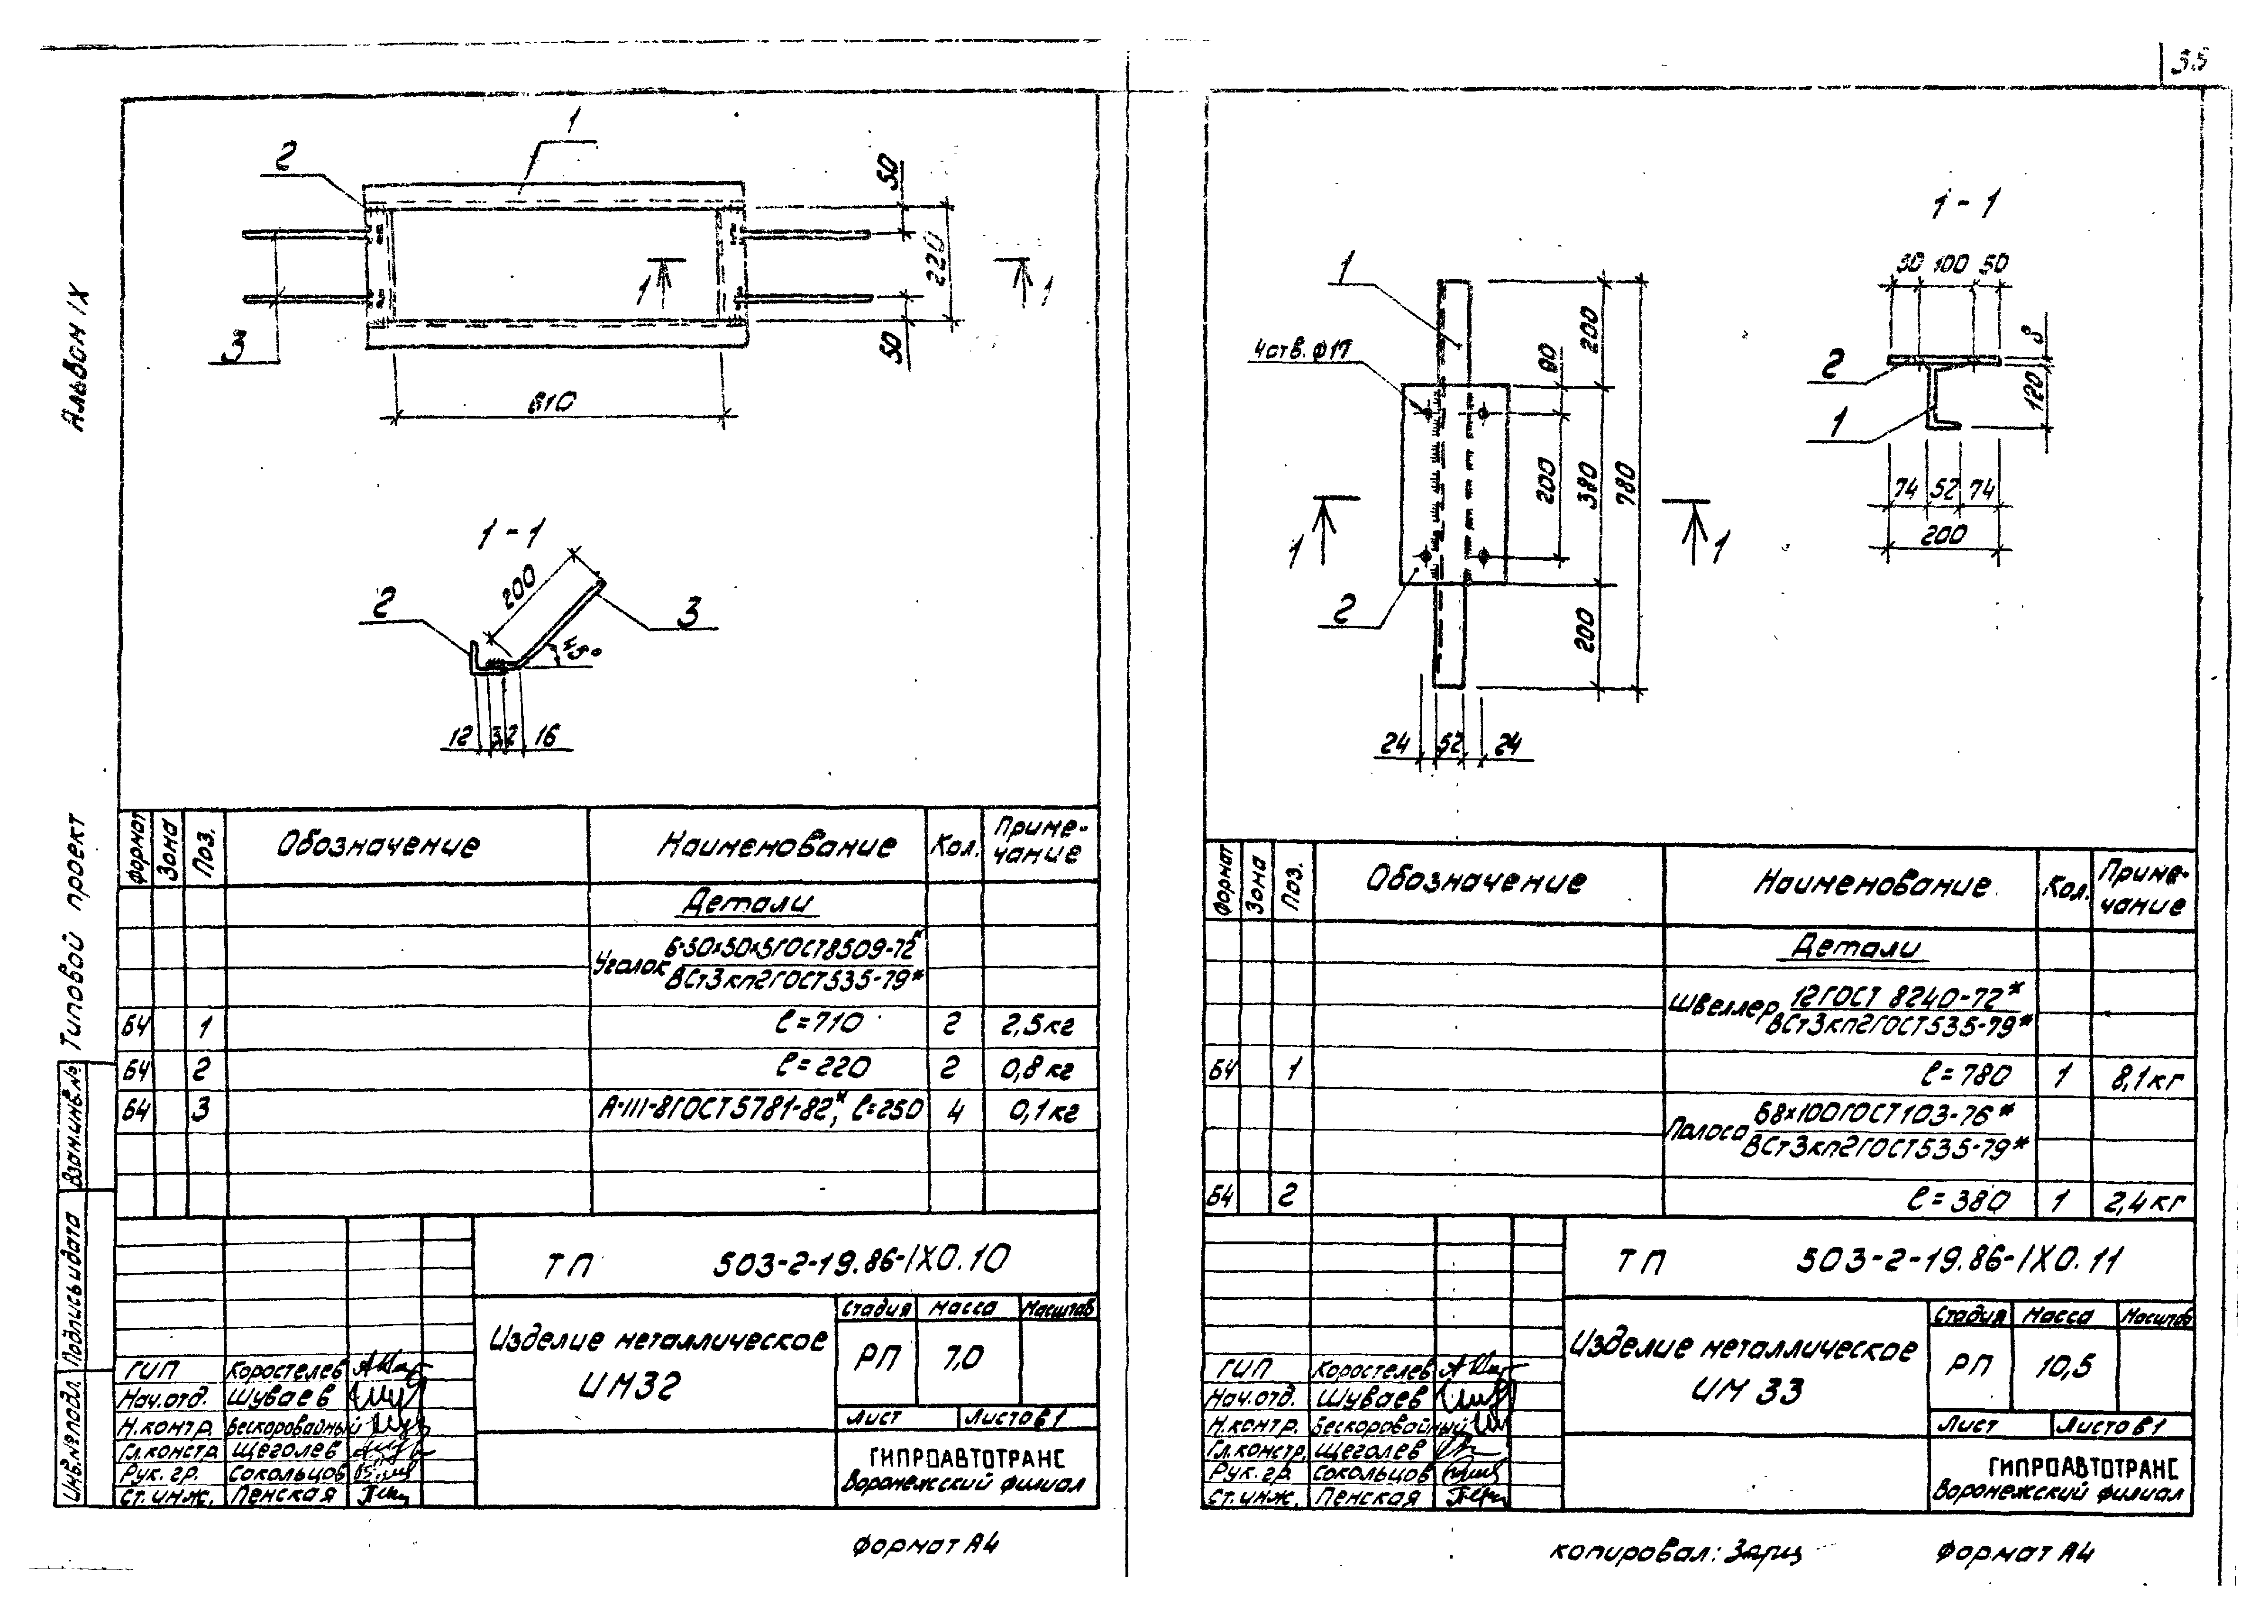 35
Альбом IX
Типовой проект
Взам.инв.№
Подпись и дата
Инв.№ подл.
1
2
50
220
50
1
1
3
610
1-1
200
2
3
45°
12
32
16
Формат
Зона
Поз.
Обозначение
Наименование
Кол.
Приме-
чание
Детали
Уголок Б-50х50х5ГОСТ8509-72*
ВСт3кп2ГОСТ535-79*
Б4 1 ℓ=710 2 2,5кг
Б4 2 ℓ=220 2 0,8кг
Б4 3 А-III-8ГОСТ5781-82*, ℓ=250 4 0,1кг
ТП 503-2-19.86-IX0.10
Изделие металлическое
ИМ32
Стадия Масса Масштаб
РП 7,0
Лист Листов 1
ГИПРОАВТОТРАНС
Воронежский филиал
ГИП Коростелев
Нач.отд. Шуваев
Н.контр. Бескоровайный
Гл.констр. Щеголев
Рук. гр. Сокольцов
Ст.инж. Пенская
Формат А4
1
4отв. Ф17
200
90
200
380
780
200
1
1
2
24 52 24
1-1
50 100 50
8
120
2
1
74 52 74
200
Формат
Зона
Поз.
Обозначение
Наименование
Кол.
Приме-
чание
Детали
Швеллер 12ГОСТ 8240-72*
ВСт3кп2ГОСТ535-79*
Б4 1 ℓ=780 1 8,1кг
Полоса Б8х100ГОСТ103-76*
ВСт3кп2ГОСТ535-79*
Б4 2 ℓ=380 1 2,4кг
ТП 503-2-19.86-IX0.11
Изделие металлическое
ИМ 33
Стадия Масса Масштаб
РП 10,5
Лист Листов 1
ГИПРОАВТОТРАНС
Воронежский филиал
ГИП Коростелев
Нач.отд. Шуваев
Н.контр. Бескоровайный
Гл.констр. Щеголев
Рук. гр. Сокольцов
Ст.инж. Пенская
копировал: Зарц
Формат А4